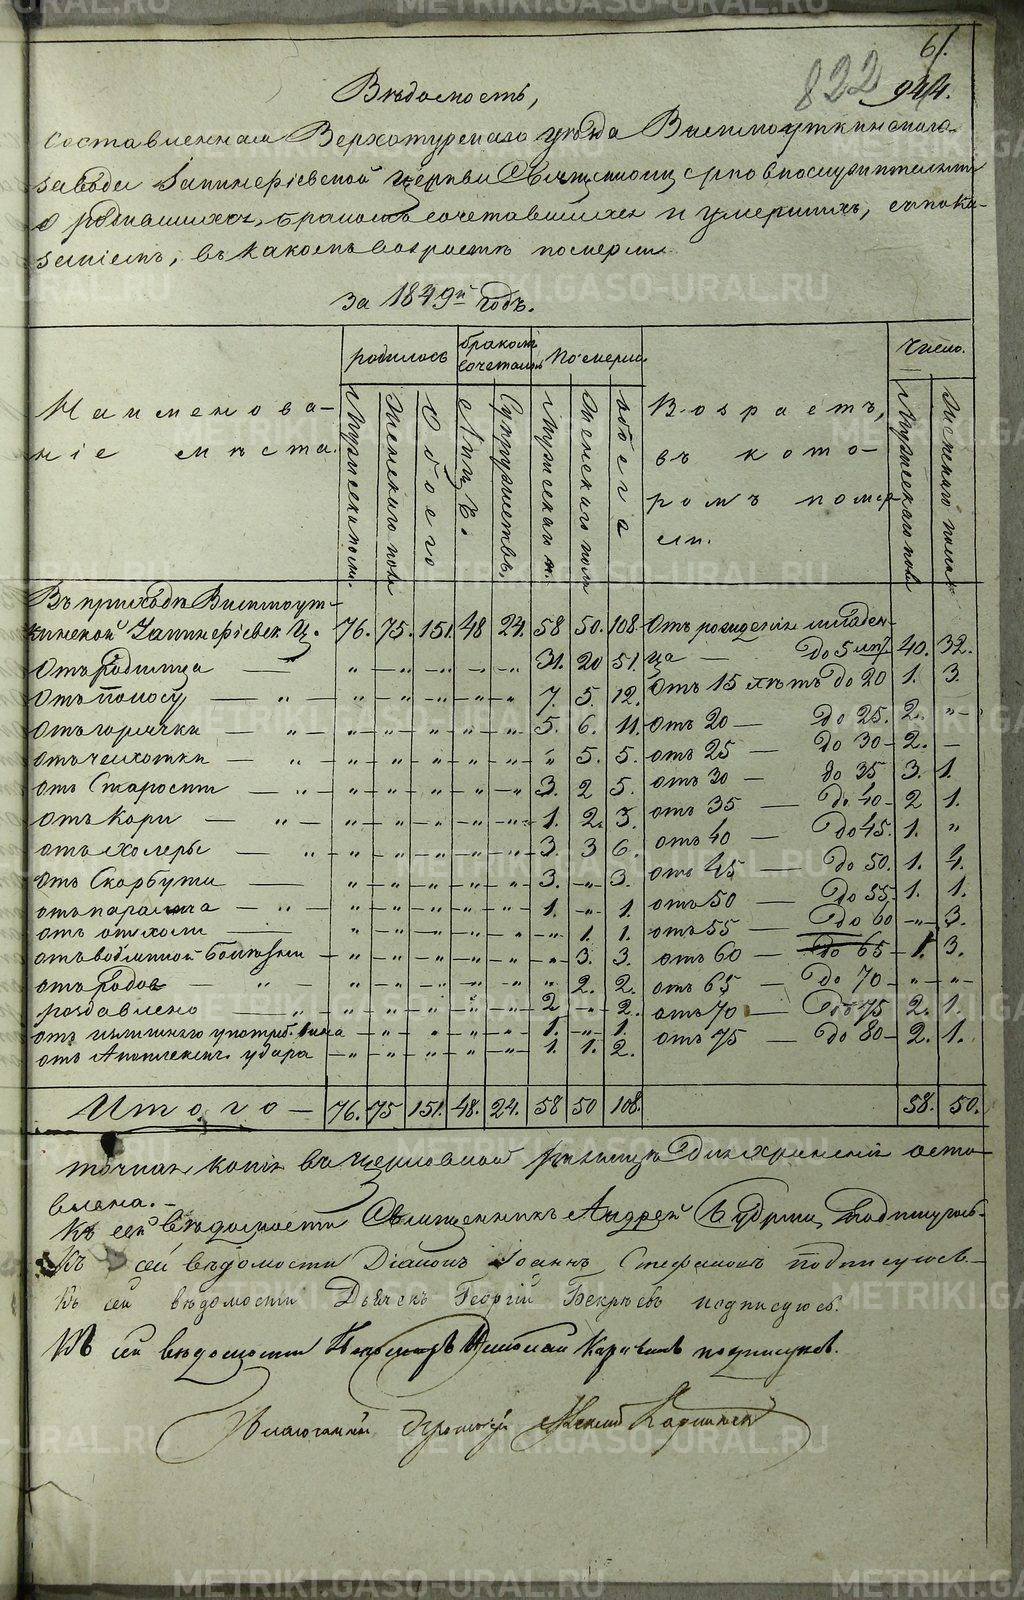 METRIKI.GASO-URAL.RU
61.
822 944.
Вѣдомость,
составленная Верхотурскаго уѣзда Висимоуткинскаго
завода Священноцерковнослужителями
о родившихся, бракомъ сочетавшихся и умершихъ, съ пока-
заніемъ, въ какомъ возрастѣ померли
за 1849й годъ.
Наименова-
ніе мѣста.
родилось
Мужескаго пола.
Женскаго пола
Обоего
бракомъ сочетались
Лицъ.
Супружествъ.
Померли
Мужескаго п.
Женскаго пола
обоега
Возрастъ,
въ кото-
ромъ помер
ли.
Число.
Мужескаго пола
Женскаго пола
Въ приходѣ Висимоут-
кинской Ц. 76. 75. 151. 48 24. 58 50. 108. Отъ рожденія младен-
Отъ родимца — „ — „ — „ — „ — „ 31. 20 51. ца — до 5 лѣт 40. 32.
Отъ поносу — „ — „ — „ — „ — „ — „ 7. 5. 12. Отъ 15 лѣтъ до 20 1. 3.
Отъ горячки — „ — „ — „ — „ — „ — „ 5. 6. 11. отъ 20 — до 25. 2. „
отъ чехотки — „ — „ — „ — „ — „ — „ „ 5. 5. отъ 25 — до 30 2. —
отъ Старости — „ — „ — „ — „ — „ — „ 3. 2 5. отъ 30 — до 35 3. 1.
отъ Кори — „ — „ — „ — „ — „ — „ 1. 2. 3. отъ 35 — до 40 2 1.
отъ холеры — „ — „ — „ — „ — „ — „ 3. 3 6. отъ 40 — до 45. 1. „
отъ Скорбута — „ — „ — „ — „ — „ 3. „ 3. отъ 45 — до 50. 1. 4.
отъ паралича — „ — „ — „ — „ — „ — „ 1. „ 1. отъ 50 — до 55 1. 1.
отъ опухоли — „ — „ — „ — „ — „ „ 1. 1. отъ 55 — до 60 „ 3.
отъ водяной Болѣзни — „ — „ — „ — „ — „ „ 3. 3. отъ 60 — до 65 1. 3.
отъ родов — „ — „ — „ — „ — „ — „ „ 2. 2. отъ 65 — до 70 „ „
раздавлено — „ — „ — „ — „ — „ — „ 2 „ 2. отъ 70 — до 75 2. 1.
отъ излишняго употреб. вина — „ — „ — „ — „ — „ 1. „ 1. отъ 75 — до 80 2. 1.
отъ Апоплексич. удара — „ — „ — „ — „ — „ 1. 1. 2.
Итого — 76. 75 151. 48. 24. 58 50 108. 58. 50.
точная копія въ церковной оста-
влена.
Къ сей вѣдомости Священникъ Андрей подписуюсь.
Къ сей вѣдомости Діаконъ Іоаннъ Стефановъ подписуюсь.
Къ сей вѣдомости Дьячекъ Георгій Бекрѣевъ подписуюсь.
Къ сей вѣдомости Пономарь Николай подписуюсь.
Благочинный